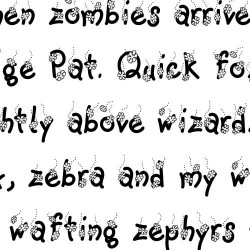 en zombies arrive
ge Pat. Quick fo
htly above wizard.
, zebra and my w
wafting zephyrs